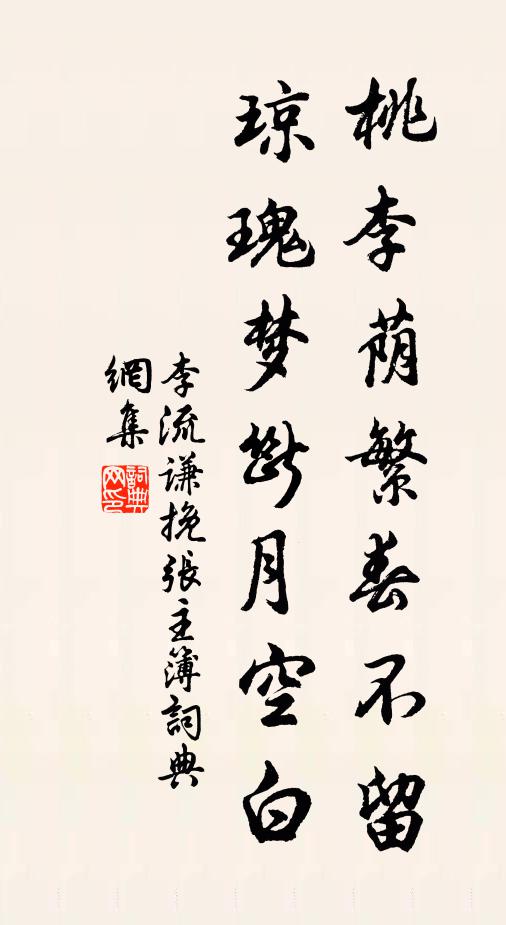 桃李荫繁春不留
琼瑰梦断月空白
李流谦挽張主簿詞典
網集
詞典
网印